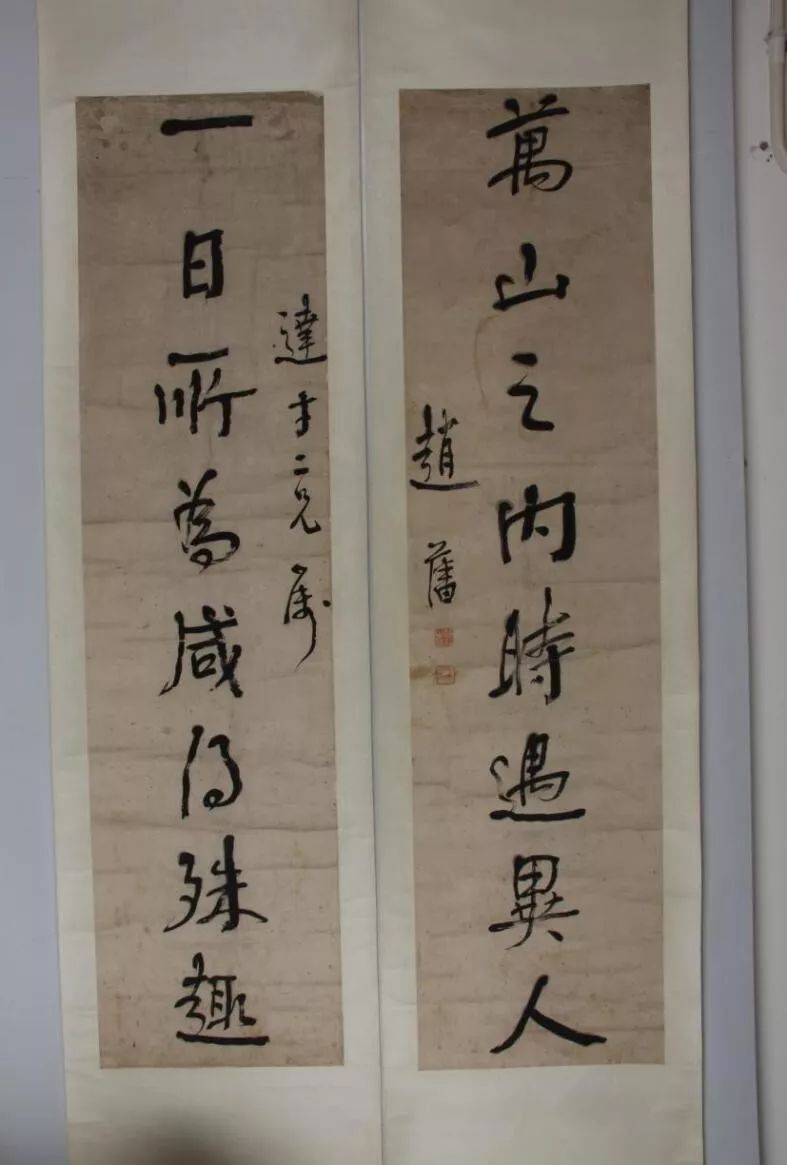 萬山之內時遇異人
趙藩
達二兄屬
一日所為咸得殊趣